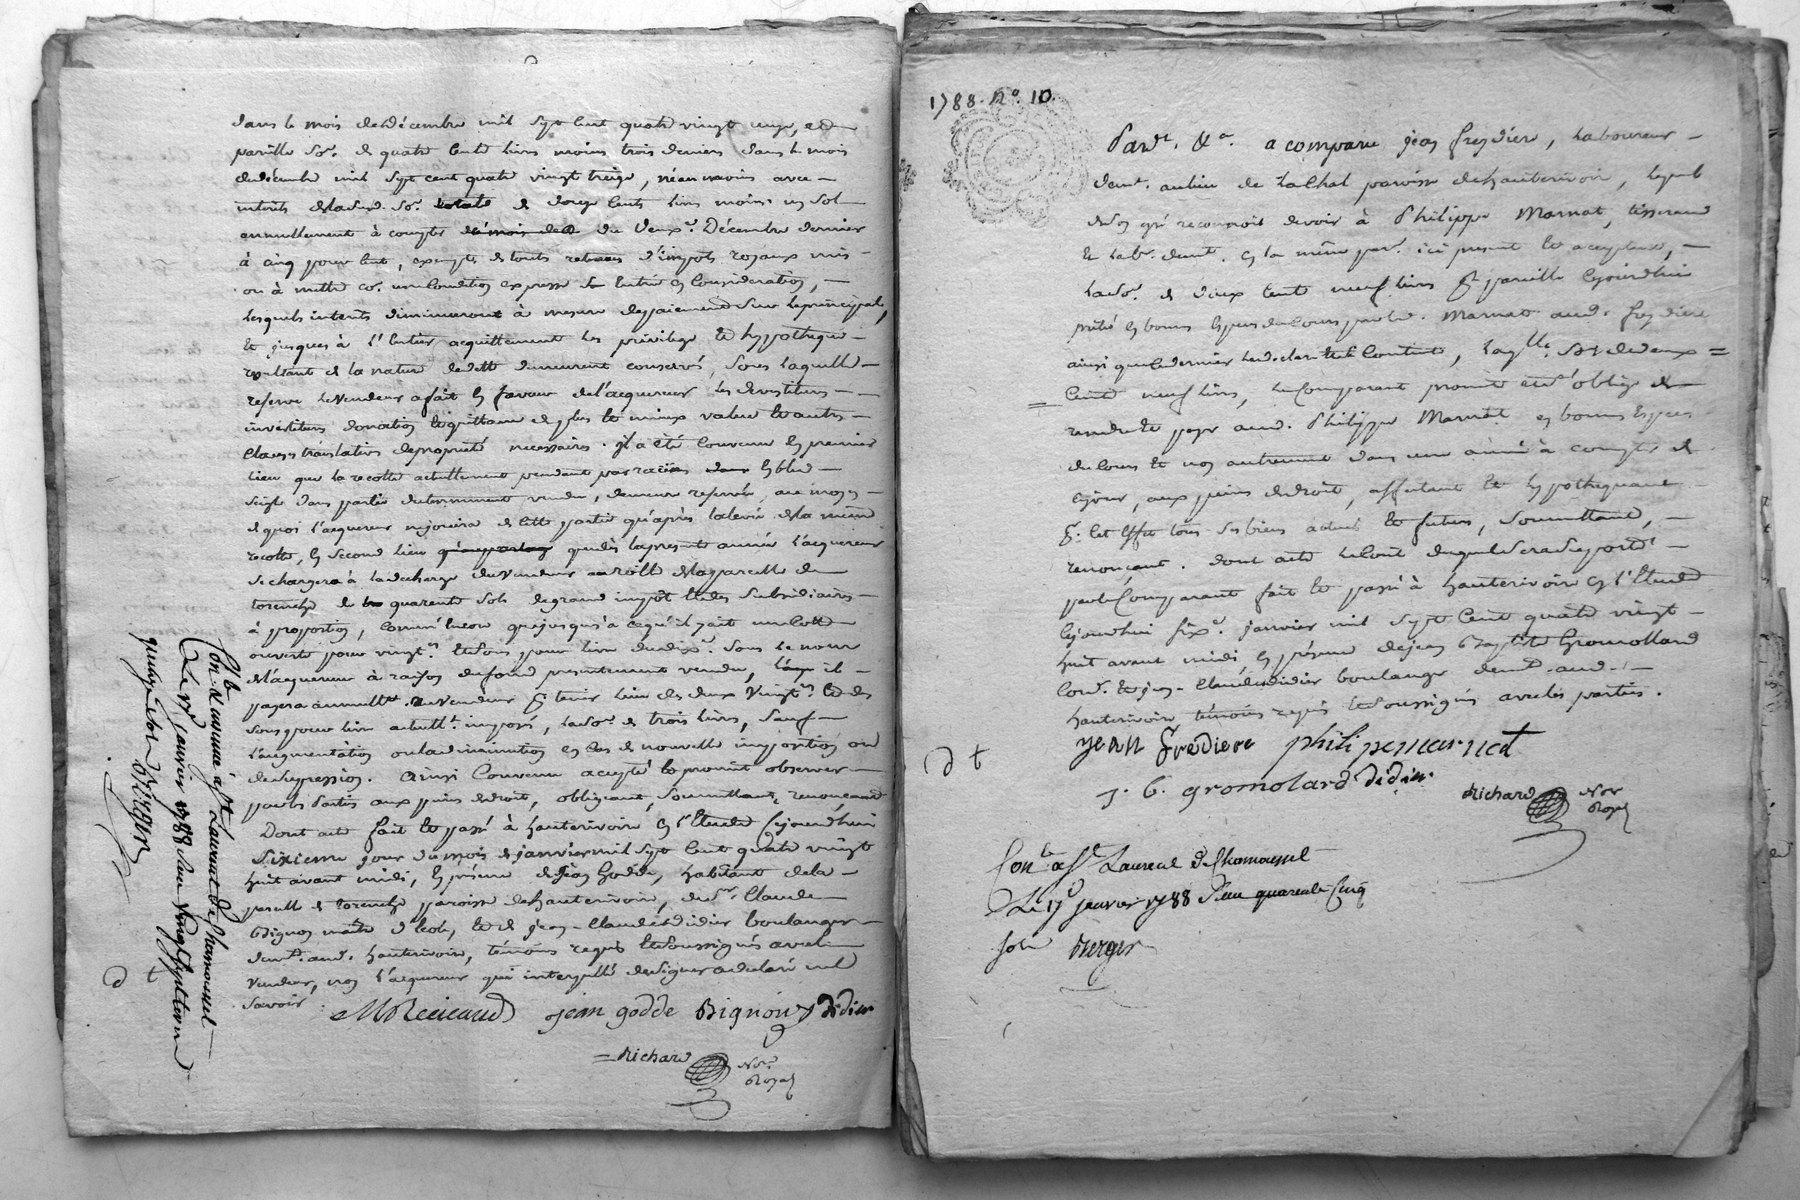 dans le mois de décembre mil sept cent quatre vingt onze, et
pareille so.e de quatre cents livres moins trois deniers dans le mois
de décembre mil sept cent quatre vingt treize, néanmoins avec
interets de lad. so.e totale de douze cents livres moins un sol
annuellement à compter du mois de du Décembre dernier
à cinq pour cent, exempts de toutes retenues d'impots royaux mis
ou à mettre co.e une condition expresse en consideration,
lesquels interets diminueront à mesure des paiements sur le principal,
et jusques à l'entier acquittement les privilege et hypotheque
resultant de la nature de dette demeurent conservés, sous laquelle
reserve le vendeur a fait en faveur de l'acquereur les devestitures
investitures donation et quittance de plus et mieux value et autres
clauses translatives de propriété necessaires. Il a été convenu en premier
lieu que la recolte actuellement pendante par racines dans en bled
seigle dans partie du tenement vendu, demeure reservée, au moyen
de quoi l'acquereur ne jouira de cette partie qu'après la levée de la meme
recolte, en second lieu que dès la presente année l'acquereur
se chargera à la decharge du vendeur au rolle de la parcelle de
torenche de quarante sols de grand impôt et des subsidiaires
à proportion, comme encore que jusqu'à ce qu'il y ait une cotte
ouverte pour vingt.e et sous pour livre du dix.e sous le nom
de l'acquereur à raison du fond presentement vendu, il
payera annuell.t au vendeur p.r tenir lieu des deux vingt.es et des
sous pour livre actuell.t imposé, la so.e de trois livres, sauf
l'augmentation ou la diminution en cas de nouvelle imposition ou
de supression. Ainsi convenu accepté et promis observer
par les parties aux peines de droit, obligeant, soumettant, renonçant
Dont acte fait et passé à hauterivoire en l'Etude cejourd'hui
sixieme jour du mois de janvier mil sept cent quatre vingt
huit avant midi, en présence de jean Godde, habitant de la
parcelle de torenche paroisse de hauterivoire, de s.r Claude
Bignon maitre d'école, et de jean-Claude didier boulanger
dem.t aud. hauterivoire, témoins requis et soussignés avec le
vendeur, non l'acquereur qui interpellé de signer a déclaré ne le
savoir.
jean godde Bignon Didier
Richard No.re
Royal
Con.lé et à st Laurent de Chamousset
Le janvier 1788 Reçu
quinze sols Berger
1788. N.o 10.
Pard.t &.a a comparu jean freydiere, laboureur
dem.t au lieu de Lachal paroisse de hauterivoire, lequel
de son gré reconnoit devoir à Philippe Marnat, tisserand
et lab.r dem.t en la même par.e ici present et acceptant,
la so.e de deux cents neuf livres p.r pareille cejourd'hui
prêtée en bonnes especes du cours par led. Marnat aud. freydiere
ainsi que ce dernier le declare et content, laq.lle so.e de deux
cents neuf livres, le comparant promet et s'oblige de
rendre et payer aud. Philippe Marnat en bonnes especes
du cours et non autrement dans une année à compter de
ce jour, aux peines de droit, affectant et hypothequant
p.r cet effet tous ses biens actuels et futurs, soumettant,
renonçant. dont acte le coût duquel sera suporté
par le Comparant fait et passé à hauterivoire en l'Etude
cejourd'hui six.e janvier mil sept cent quatre vingt
huit avant midi en présence de jean Baptiste Gromollard
et jean-Claude didier boulanger dem.t aud.
hauterivoire, témoins requis et soussignés avec les parties.
jean frediere philipe marnat
J. B. gromolard didier
Richard No.re
Royal
Con.lé à st Laurent de Chamousset
Le 17 janvier 1788 Reçu quarante cinq
sols Berger